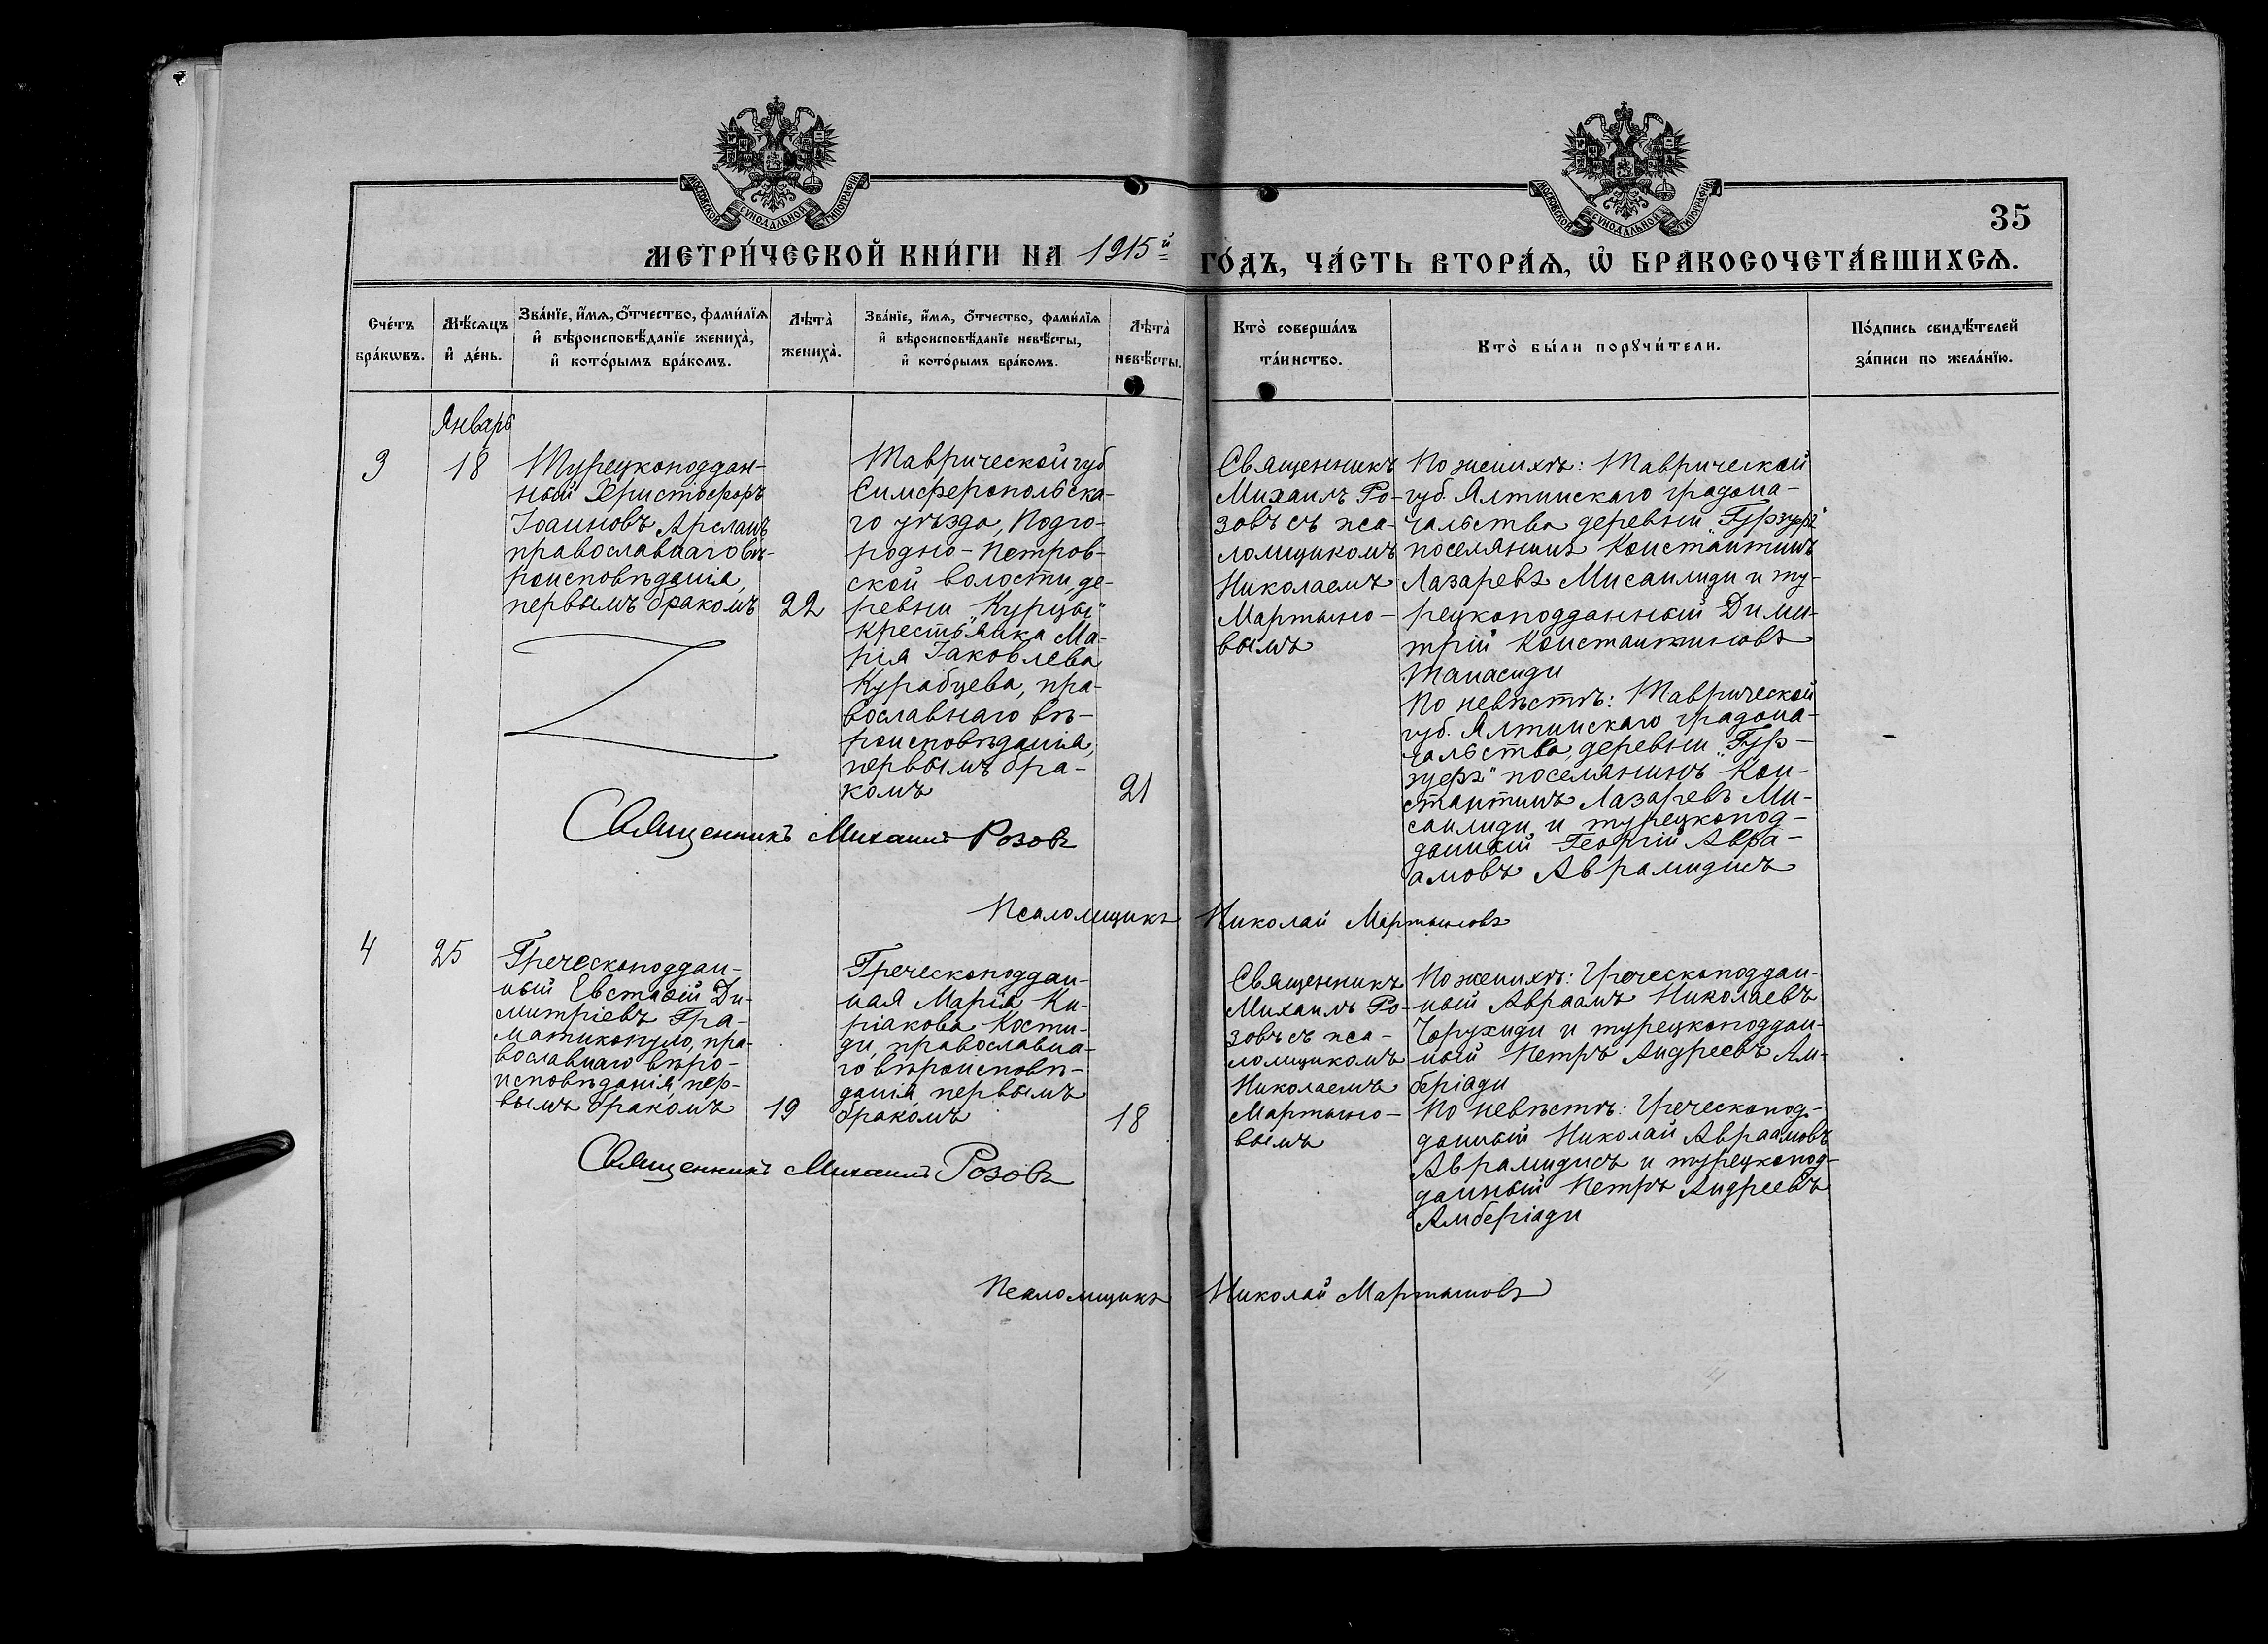 МОСКОВСКОЙ СѴНОДАЛЬНОЙ ТИПОГРАФІИ
МОСКОВСКОЙ СѴНОДАЛЬНОЙ ТИПОГРАФІИ
35
МЕТРИ́ЧЕСКОЙ КНИ́ГИ НА 1915й
ГО́ДЪ, ЧА́СТЬ ВТОРА́Ѧ, Ѡ҆ БРАКОСОЧЕТА́ВШИХСѦ.
Сче́тъ
бра́кѡвъ.
Мѣ́сѧцъ
и҆ де́нь.
Зва́нїе, и҆́мѧ, ѻ҆́тчество, фами́лїѧ
и҆ вѣроисповѣ́данїе жениха̀,
и҆ кото́рымъ бра́комъ.
Лѣта̀
жениха̀.
Зва́нїе, и҆́мѧ, ѻ҆́тчество, фами́лїѧ
и҆ вѣроисповѣ́данїе невѣ́сты,
и҆ кото́рымъ бра́комъ.
Лѣта̀
невѣ́сты.
Кто̀ соверша́лъ
та́инство.
Кто̀ бы́ли порꙋчи́тели.
По́дпись свидѣ́телей
за́писи по жела́нїю.
Январь
3
18
Турецкоподдан-
ный Христофоръ
Іоанновъ Арсланъ
православнаго вѣ-
роисповѣданія,
первымъ бракомъ
22
Таврической губ.
Симферопольска-
го уѣзда, Подго-
родно-Петров-
ской волости, де-
ревни "Курцы"
крестьянка Ма-
рія Іаковлева
Курабцева, пра-
вославнаго вѣ-
роисповѣданія,
первымъ бра-
комъ
21
Священникъ
Михаилъ Ро-
зовъ съ пса-
ломщикомъ
Николаемъ
Мартыно-
вымъ
По женихѣ: Таврической
губ. Ялтинскаго градона-
чальства деревни "Гурзуфъ"
поселянинъ Константинъ
Лазаревъ Мисаилиди и ту-
рецкоподданный Дими-
трій Константиновъ
Танасиди
По невѣстѣ: Таврической
губ. Ялтинскаго градона-
чальства, деревни "Гур-
зуфъ" поселянинъ Кон-
стантинъ Лазаревъ Ми-
саилиди и турецкопод-
данный Георгій Авра-
амовъ Аврамидисъ
Священникъ Михаилъ Розовъ
Псаломщикъ Николай Мартыновъ
4
25
Греческоподдан-
ный Евстаѳій Ди-
митріевъ Гра-
матикопуло, пра-
вославнаго вѣро-
исповѣданія, пер-
вымъ бракомъ
19
Греческоподдан-
ная Марія Ки-
ріакова Кости-
ди, православна-
го вѣроисповѣ-
данія, первымъ
бракомъ
18
Священникъ
Михаилъ Ро-
зовъ съ пса-
ломщикомъ
Николаемъ
Мартыно-
вымъ
По женихѣ: Греческоподдан-
ный Авраамъ Николаевъ
Чорухиди и турецкоподдан-
ный Петръ Андреевъ Ам-
беріади
По невѣстѣ: Греческопод-
данный Николай Авраамовъ
Аврамидисъ и турецкопод-
данный Петръ Андреевъ
Амберіади
Священникъ Михаилъ Розовъ
Псаломщикъ Николай Мартыновъ